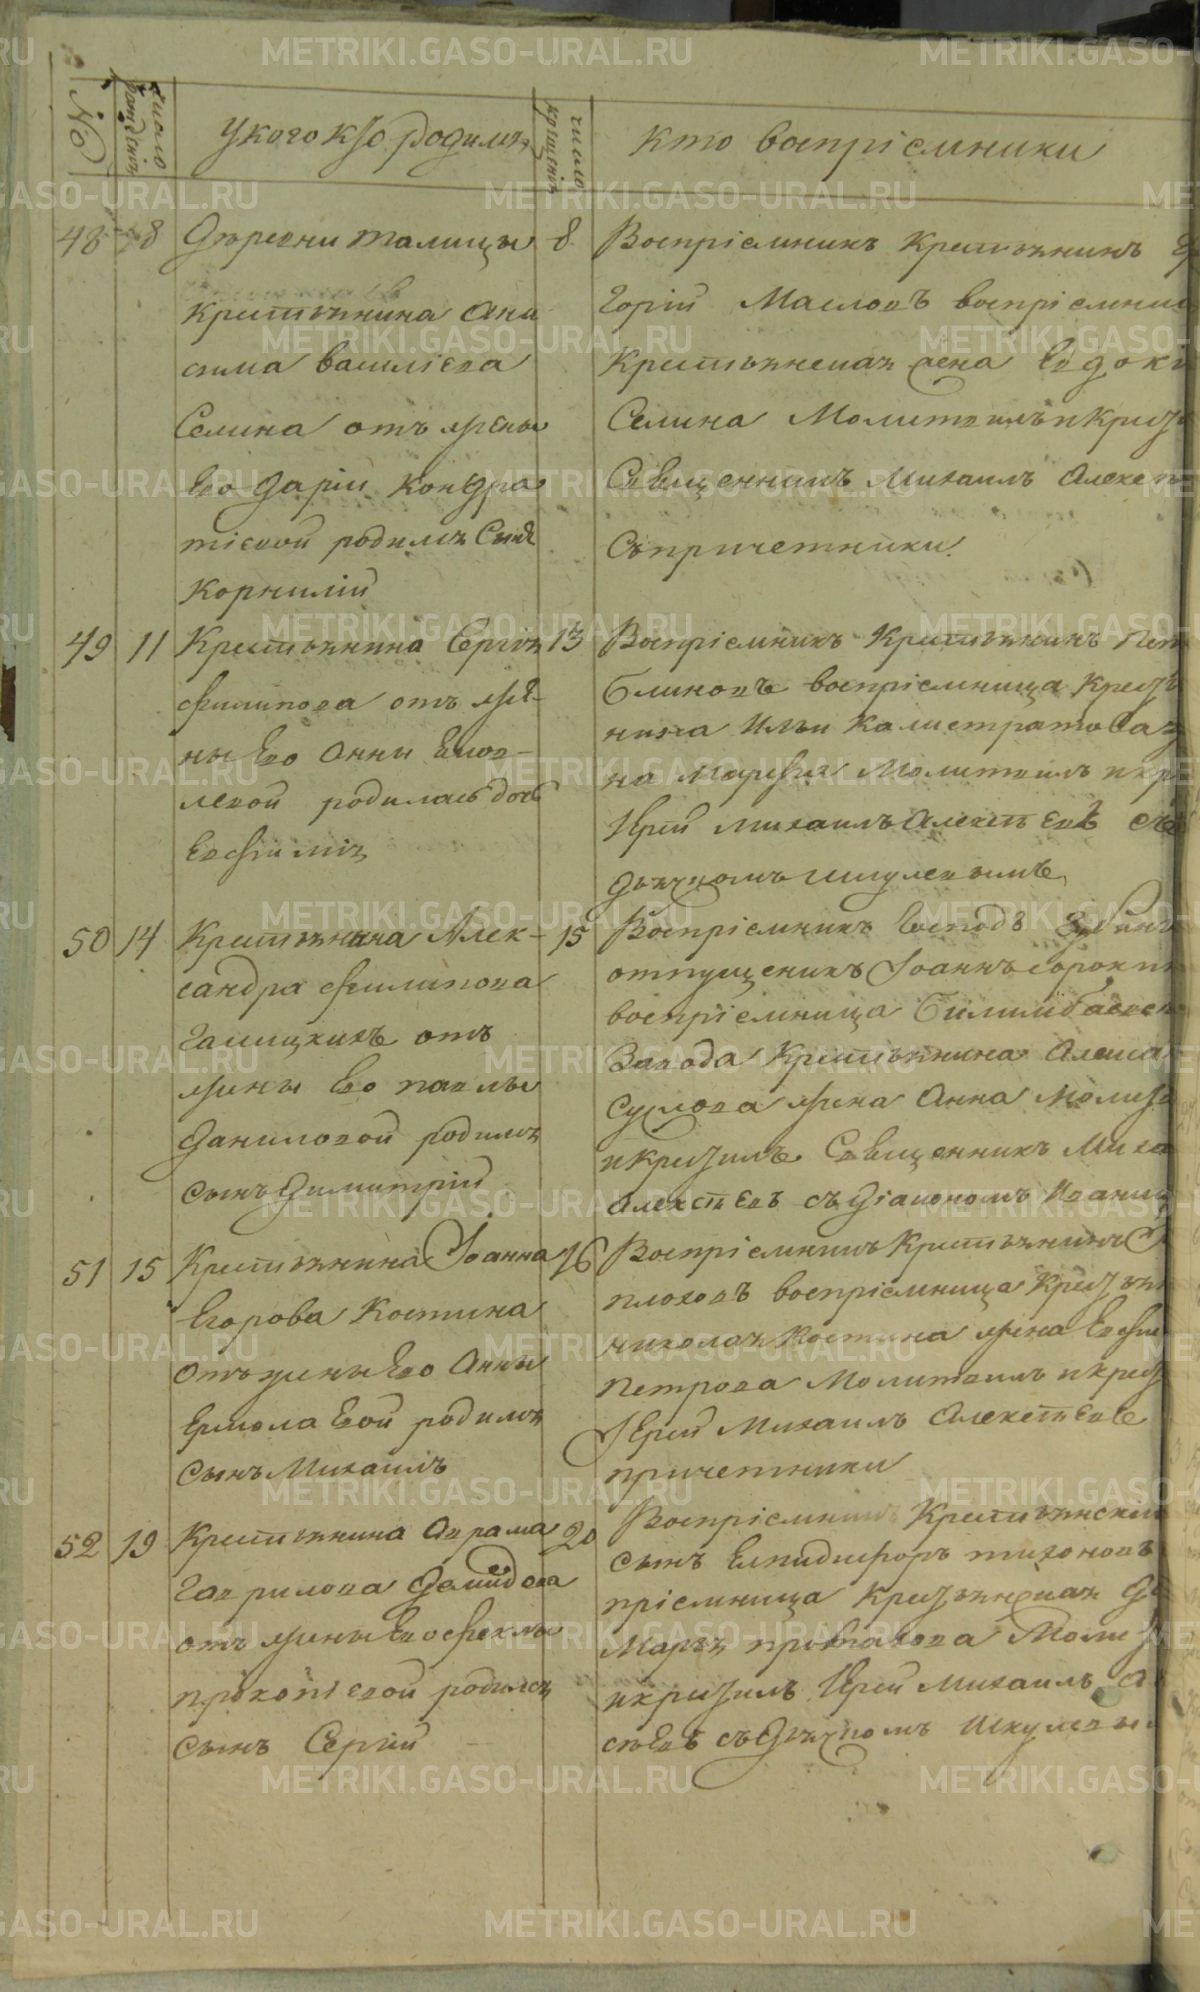 №
число рожденія
У кого кто родилъ
число крещенія
Кто воспріемники
48
8
Деревни Талицы
8
Крестьянина Они
сима Василіева
Селина отъ жены
Его Даріи Кондра
тіевой родилъ Сына
Корнилій
Воспріемникъ Крестьянинъ
горій Масловъ воспріемни
Крестьянская жена Евдоки
Селина Молитвилъ и Крест
Священникъ Михаилъ Алексѣ
Съ причетники.
49
11
Крестьянина Сергія
13
Филипова отъ же-
ны Его Анны Емов-
левой родилась дочь
Евфимія
Воспріемникъ Крестьянинъ Пет
Блиновъ воспріемница Крест
нина Ильи Калистратова
на Марфия Молитвилъ и кр
Ирей Михаилъ Алексѣевъ съ
дьячкомъ Шкулевымъ
50
14
Крестьянина Алек-
15
сандра Филипова
Галицкихъ отъ
жены Его Павлы
Даниловой родился
сынъ Димитрій
Воспріемникъ Господъ Зубин
отпущеникъ Іоаннъ Сорокин
воспріемница Билимбаевск
Завода Крестьянина Алекса
Суслова жена Анна Молит
и Крестилъ Священникъ Миха
Алексѣевъ съ Діакономъ Иваниц
51
15
Крестьянина Іоанна
16
Егорова Костина
Отъ жены Его Анны
Ермолаевой родился
Сынъ Михаилъ
Воспріемникъ Крестьянинъ
Плоховъ воспріемница Крестьян
Николая Костина жена Евфи
Петрова Молитвилъ и крест
Іерей Михаилъ Алексѣевъ
причетники
52
19
Крестьянина Аврама
20
Гаврилова Демидова
отъ жены Его Феклы
прокопіевой родился
сынъ Сергій
Воспріемникъ Крестьянскій
сынъ Елпидифоръ Тихоновъ
пріемница Крестьянская
Марья протасова Моли
и крестилъ Ирей Михаилъ А
сѣевъ съ Дьячкомъ Шкулевы
METRIKI.GASO-URAL.RU